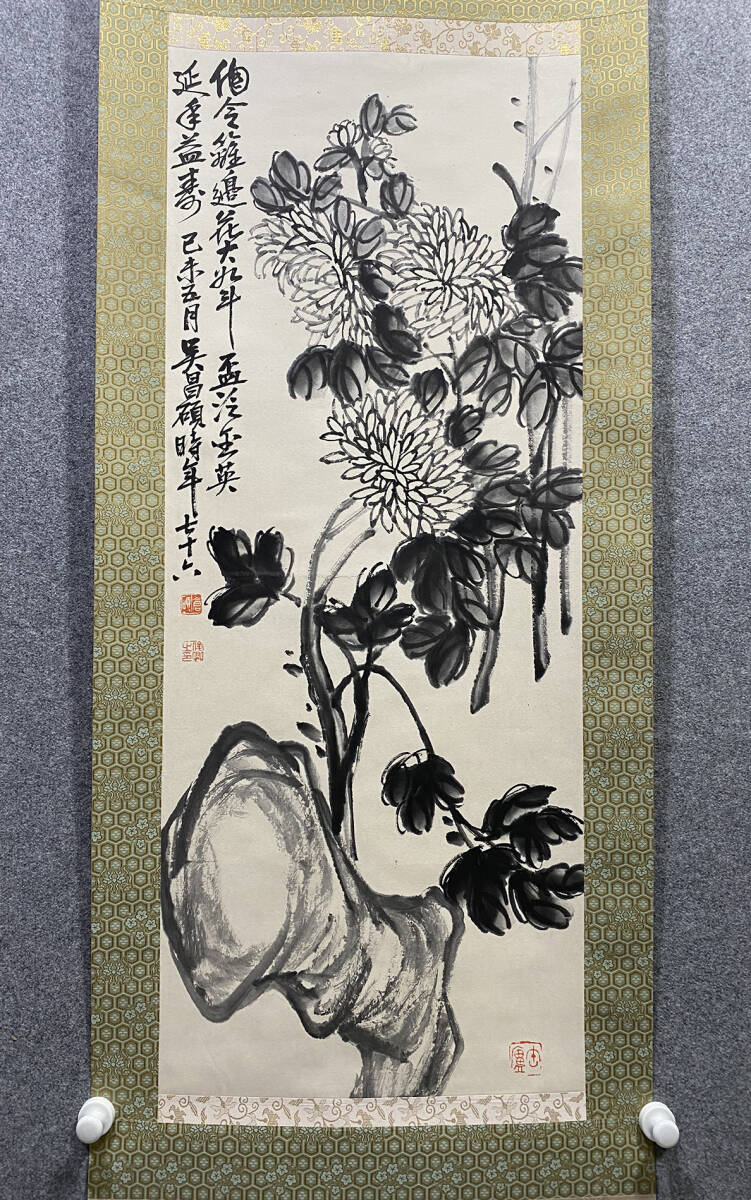 陶令籬邊花大如斗盃泛金英
延年益壽己未五月吳昌碩時年七十六